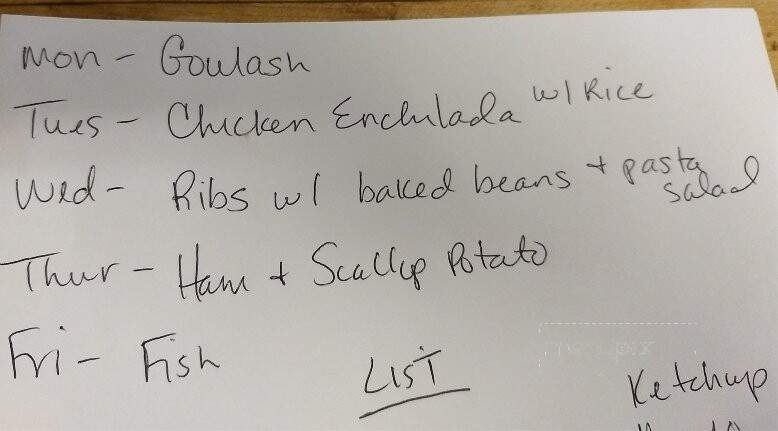 Mon - Goulash
Tues - Chicken Enchilada w/ Rice
Wed - Ribs w/ baked beans + pasta salad
Thur - Ham + Scallop Potato
Fri - Fish
LIST
Ketchup